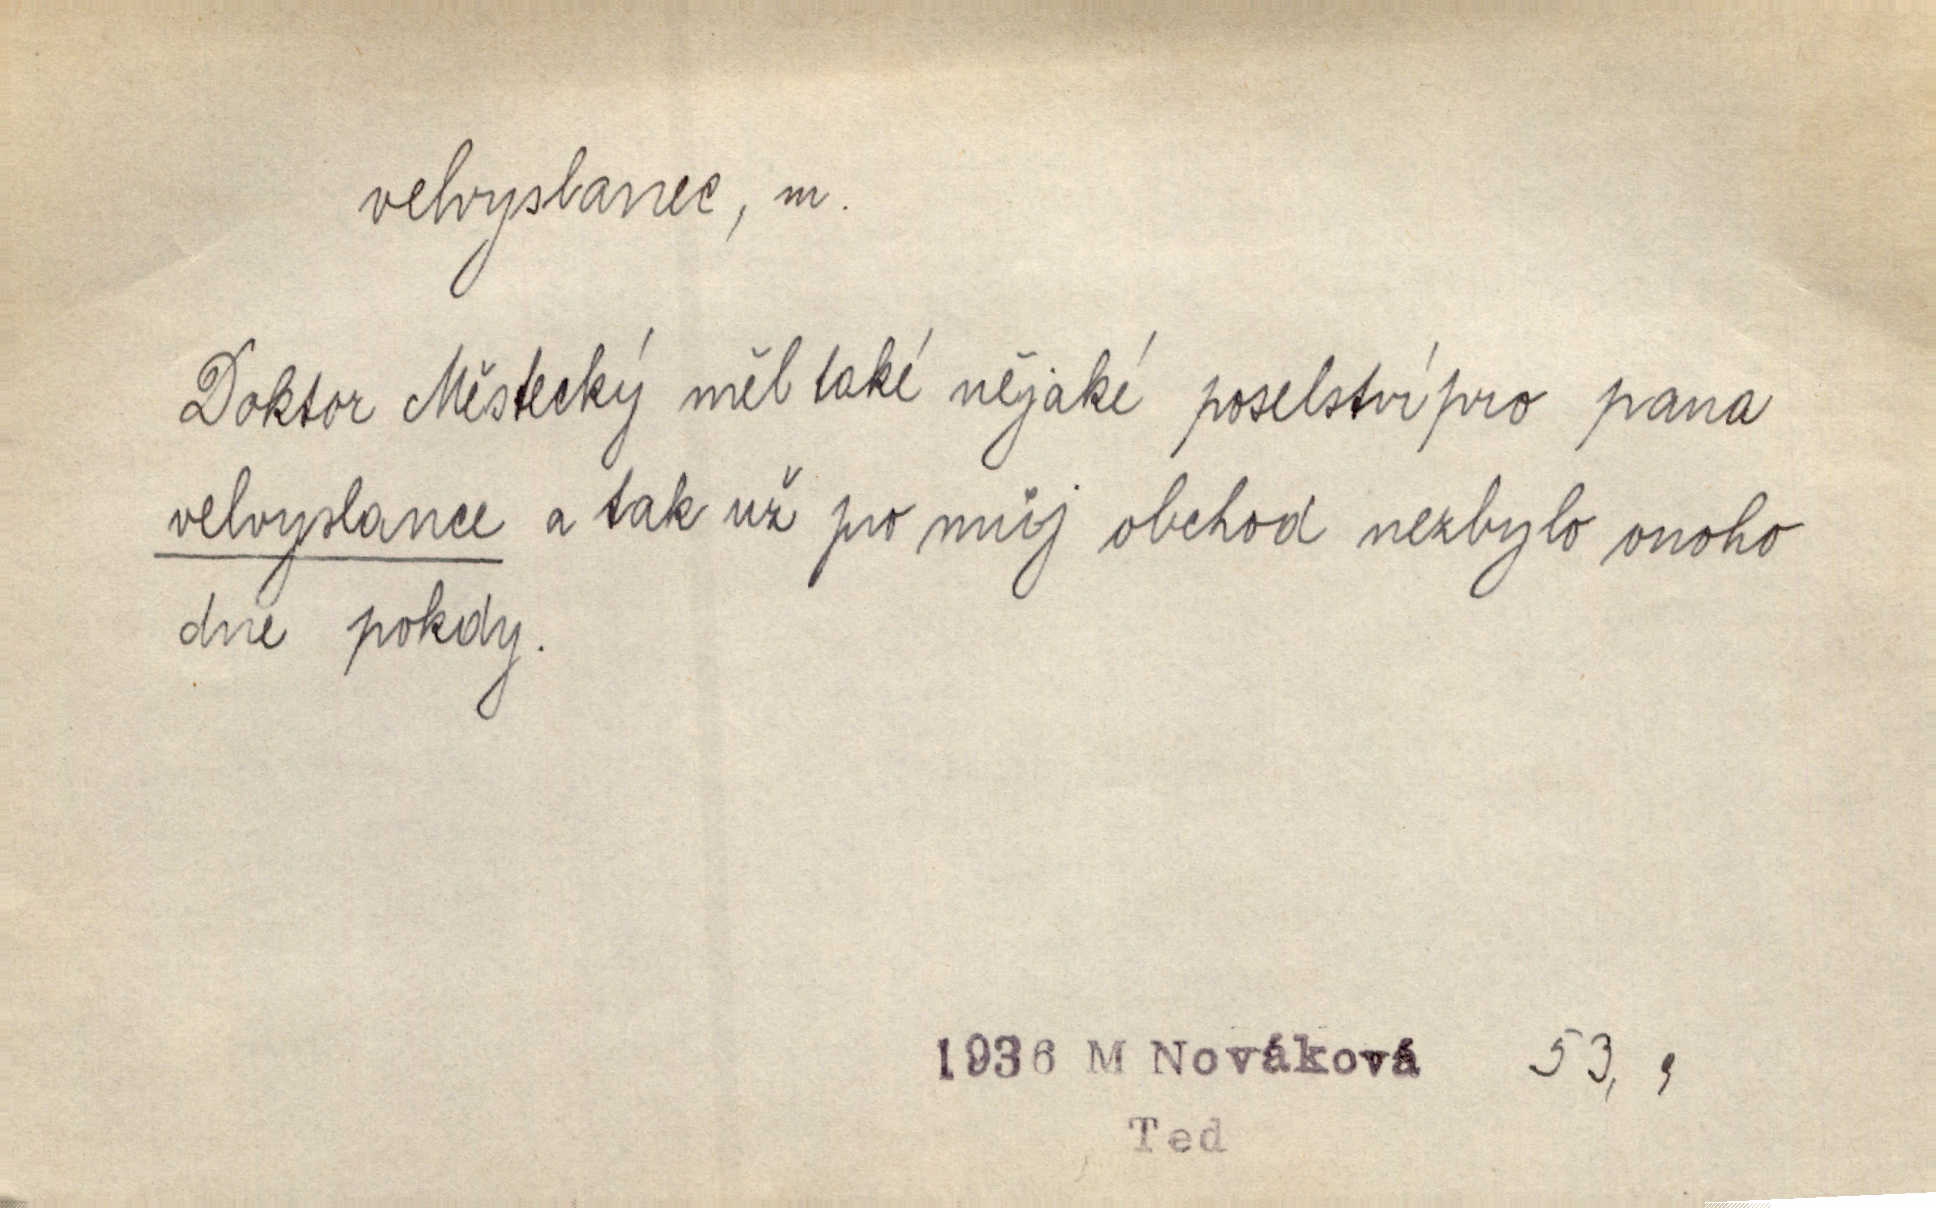 velvyslanec, m.
Doktor Městecký měl také nějaké poselství pro pana
velvyslance a tak už pro můj obchod nezbylo onoho
dne pokdy.
1936 M Nováková 53,9
Ted